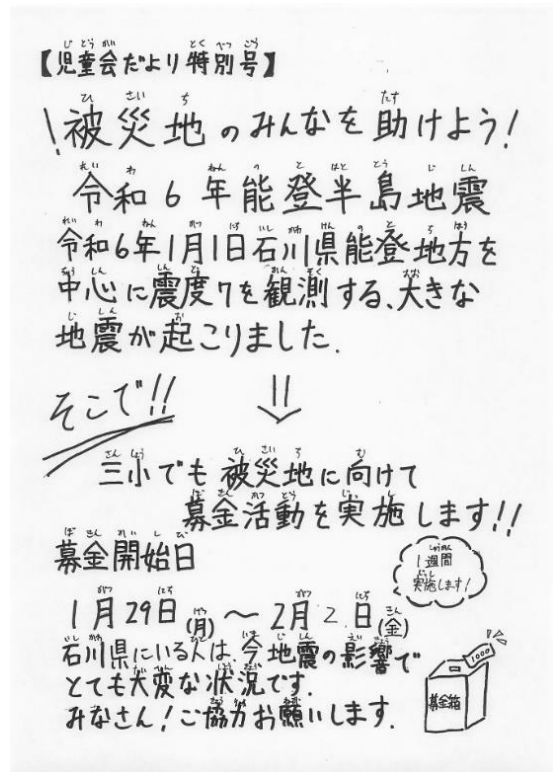 【児童会だより特別号】
\被災地のみんなを助けよう!
令和6年能登半島地震
令和6年1月1日石川県能登地方を
中心に震度7を観測する、大きな
地震が起こりました.
そこで!!
三小でも被災地に向けて
募金活動を実施します!!
募金開始日
1週間
実施します!
1月29日(月)～2月2日(金)
石川県にいる人は、今地震の影響で
とても大変な状況です.
みなさん!ご協力お願いします.
1000
募金箱